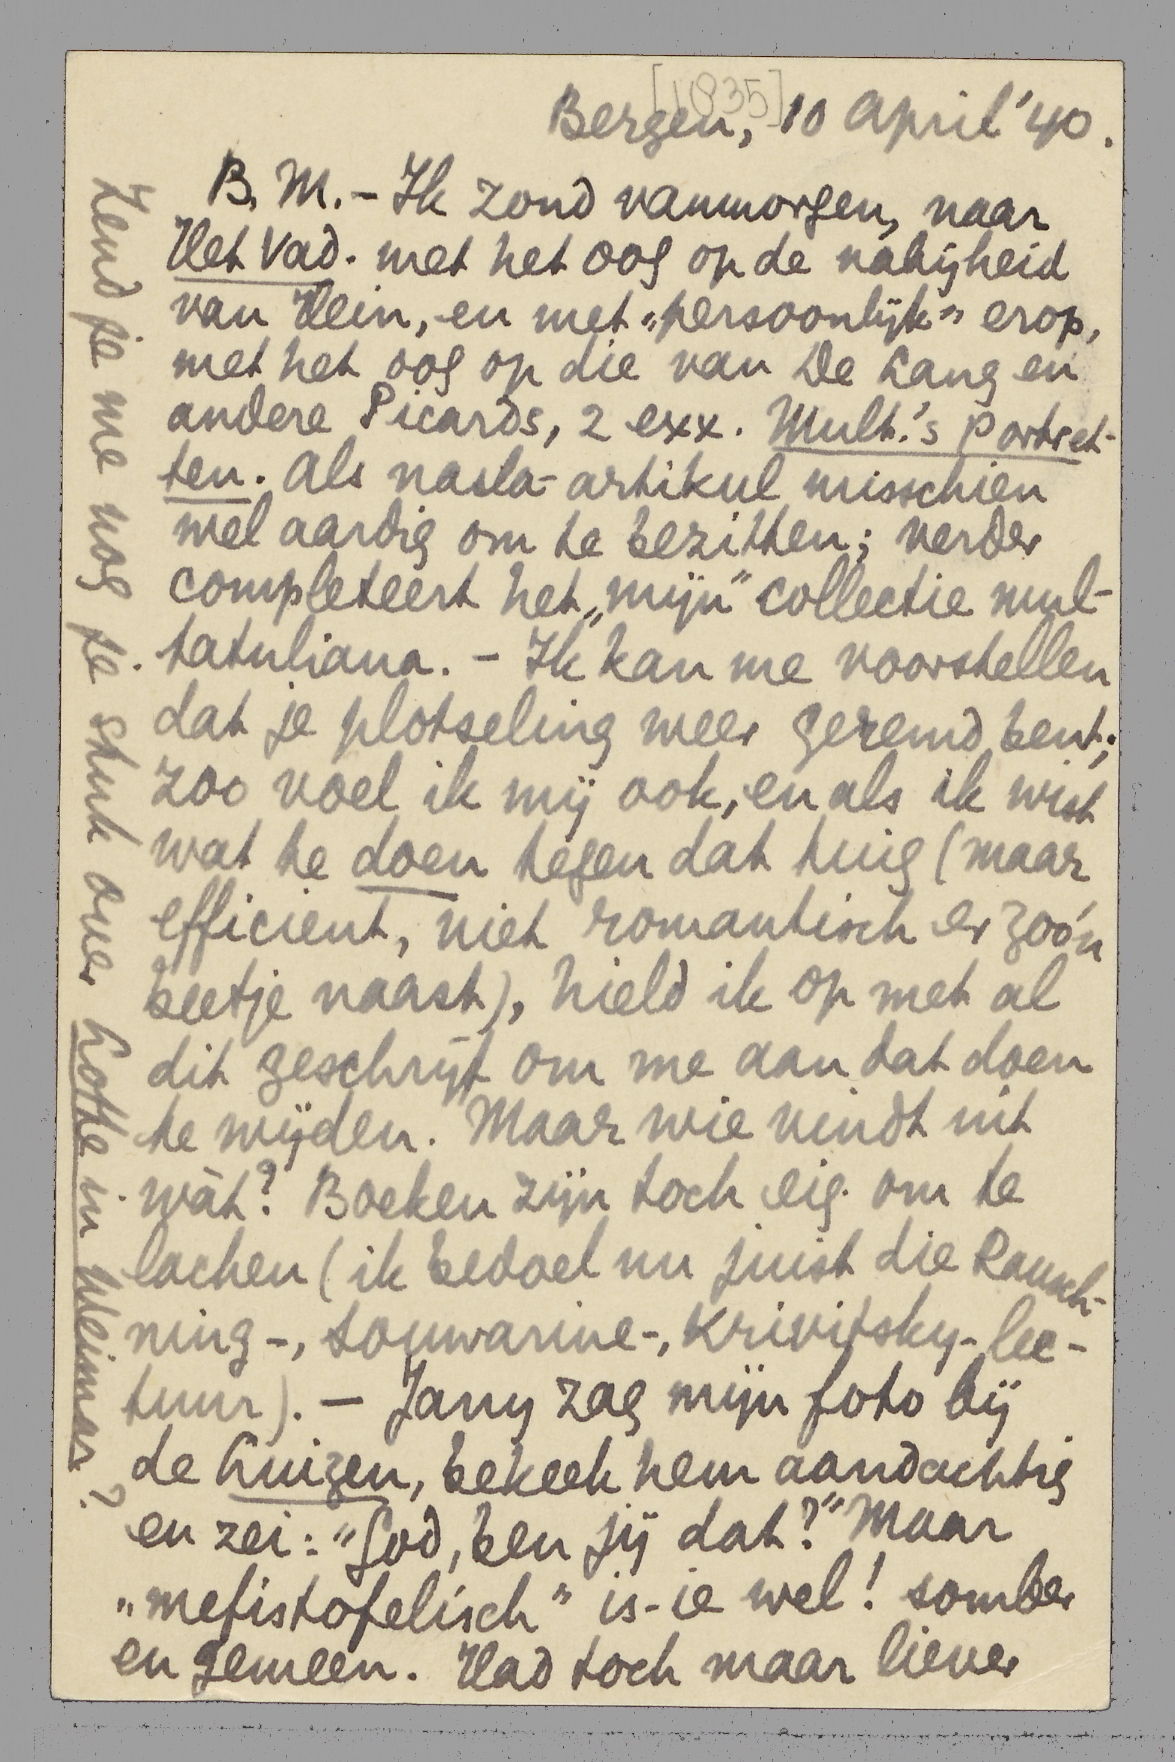 [1835]
Bergen, 10 April '40.
B. M. – Ik zond vanmorgen, naar
Het Vad. met het oog op de nabijheid
van Hein, en met „persoonlijk” erop,
met het oog op die van De Lang en
andere Picards, 2 exx. Mult.'s Portret-
ten. Als nasla-artikul misschien
wel aardig om te bezitten; verder
completeert het „mijn” collectie mul-
tatuliana. – Ik kan me voorstellen
dat je plotseling weer geremd bent;
zoo voel ik mij ook, en als ik wist
wat te doen tegen dat tuig (maar
efficient, niet romantisch er zóó'n
beetje naast), hield ik op met al
dit geschrijf om me aan dat doen
te wijden. Maar wie vindt uit
wàt? Boeken zijn toch eig. om te
lachen (ik bedoel nu juist die Rausch-
ning-, Souwarine-, Krivitsky-lec-
tuur). – Jany zag mijn foto bij
de Guizen, bekeek hem aandachtig
en zei: “God, ben jij dat?” Maar
„mefistofelisch” is-ie wel! somber
en gemeen. Had toch maar liever
Zend je me nog je stuk over Lotte in Weimar?